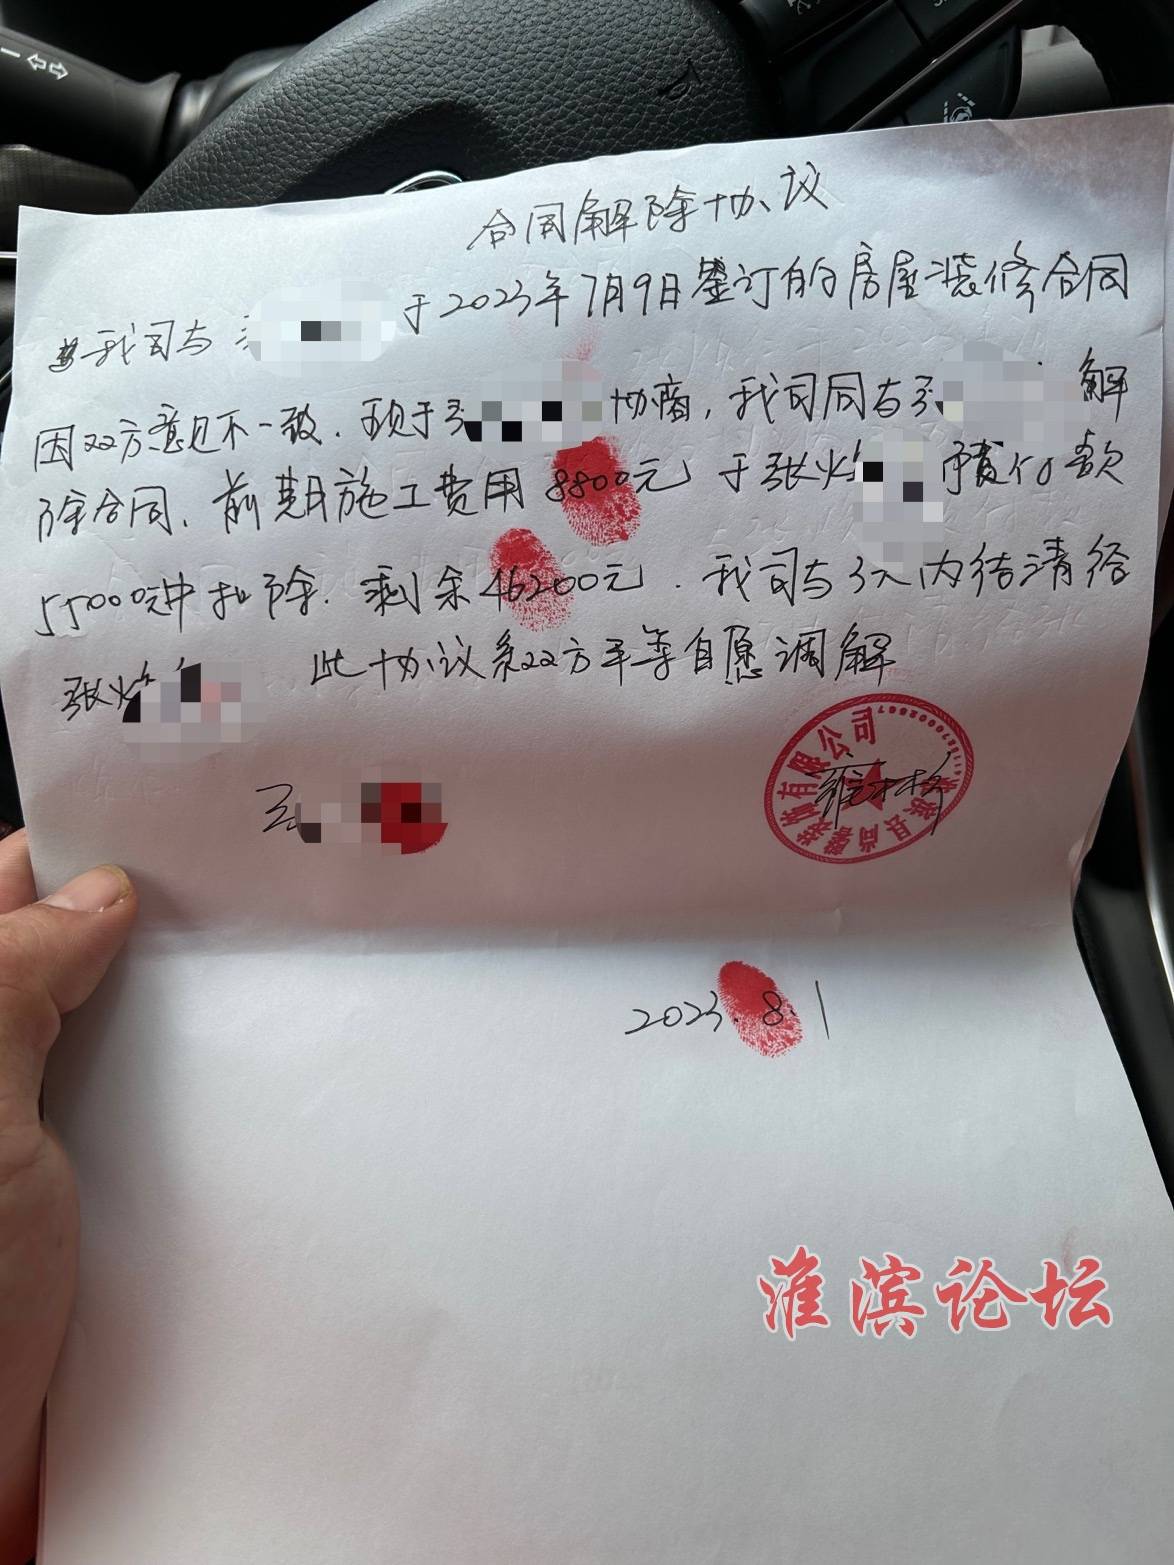 合同解除协议
我司与 于2023年7月9日签订的房屋装修合同
因双方意见不一致.现于 协商,我司同与 解
除合同.前期施工费用8800元于张 预付款
55000元中扣除.剩余46200元.我司与3天内结清给
张 此协议系双方平等自愿调解
淮滨县尚馨装饰有限公司
2023.8.1
淮滨论坛